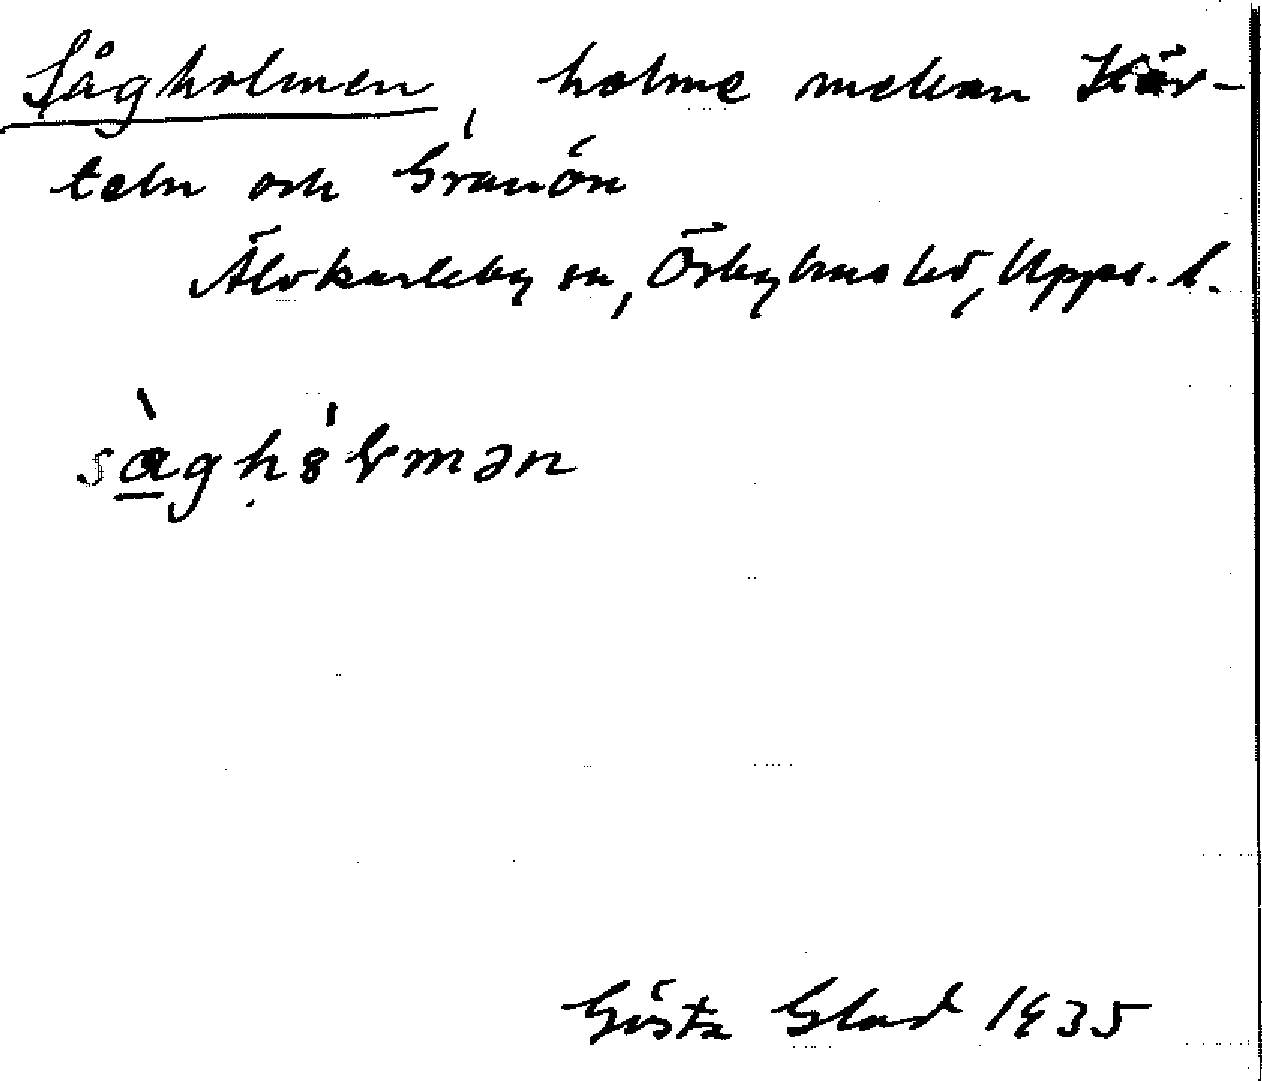 Sågholmen, holme mellan Kär-
teln och Granön
Älvkarleby sn, Örbyhus hd, Upps. l.
såghȯlmən
Gösta Glad 1935